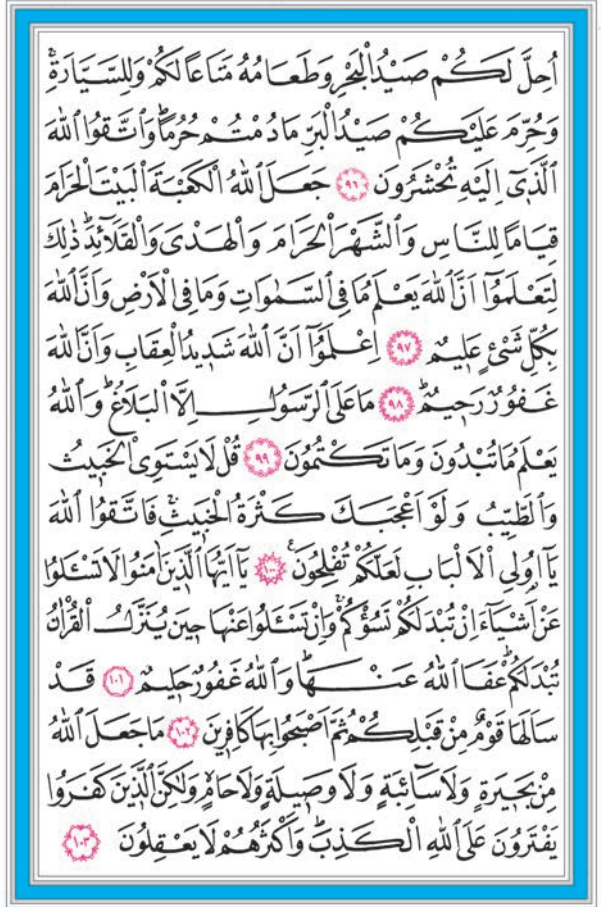 اُحِلَّ لَكُمْ صَيْدُ الْبَحْرِ وَطَعَامُهُ مَتَاعًا لَكُمْ وَلِلسَّيَّارَةِۚ
وَحُرِّمَ عَلَيْكُمْ صَيْدُ الْبَرِّ مَا دُمْتُمْ حُرُمًاۜ وَاتَّقُوا اللّٰهَ
الَّذٖٓي اِلَيْهِ تُحْشَرُونَ ﴿٩٦﴾ جَعَلَ اللّٰهُ الْكَعْبَةَ الْبَيْتَ الْحَرَامَ
قِيَامًا لِلنَّاسِ وَالشَّهْرَ الْحَرَامَ وَالْهَدْيَ وَالْقَلَٓائِدَۜ ذٰلِكَ
لِتَعْلَمُٓوا اَنَّ اللّٰهَ يَعْلَمُ مَا فِي السَّمٰوَاتِ وَمَا فِي الْاَرْضِ وَاَنَّ اللّٰهَ
بِكُلِّ شَيْءٍ عَلٖيمٌ ﴿٩٧﴾ اِعْلَمُٓوا اَنَّ اللّٰهَ شَدٖيدُ الْعِقَابِ وَاَنَّ اللّٰهَ
غَفُورٌ رَحٖيمٌۜ ﴿٩٨﴾ مَا عَلَى الرَّسُولِ اِلَّا الْبَلَاغُۜ وَاللّٰهُ
يَعْلَمُ مَا تُبْدُونَ وَمَا تَكْتُمُونَ ﴿٩٩﴾ قُلْ لَا يَسْتَوِي الْخَبٖيثُ
وَالطَّيِّبُ وَلَوْ اَعْجَبَكَ كَثْرَةُ الْخَبٖيثِۚ فَاتَّقُوا اللّٰهَ
يَٓا اُو۬لِي الْاَلْبَابِ لَعَلَّكُمْ تُفْلِحُونَ۟ ﴿١٠٠﴾ يَٓا اَيُّهَا الَّذٖينَ اٰمَنُوا لَا تَسْـَٔلُوا
عَنْ اَشْيَٓاءَ اِنْ تُبْدَ لَكُمْ تَسُؤْكُمْۚ وَاِنْ تَسْـَٔلُوا عَنْهَا حٖينَ يُنَزَّلُ الْقُرْاٰنُ
تُبْدَ لَكُمْۜ عَفَا اللّٰهُ عَنْهَاۜ وَاللّٰهُ غَفُورٌ حَلٖيمٌ ﴿١٠١﴾ قَدْ
سَاَلَهَا قَوْمٌ مِنْ قَبْلِكُمْ ثُمَّ اَصْبَحُوا بِهَا كَافِرٖينَ ﴿١٠٢﴾ مَا جَعَلَ اللّٰهُ
مِنْ بَحٖيرَةٍ وَلَا سَٓائِبَةٍ وَلَا وَصٖيلَةٍ وَلَا حَامٍۙ وَلٰكِنَّ الَّذٖينَ كَفَرُوا
يَفْتَرُونَ عَلَى اللّٰهِ الْكَذِبَۜ وَاَكْثَرُهُمْ لَا يَعْقِلُونَ ﴿١٠٣﴾